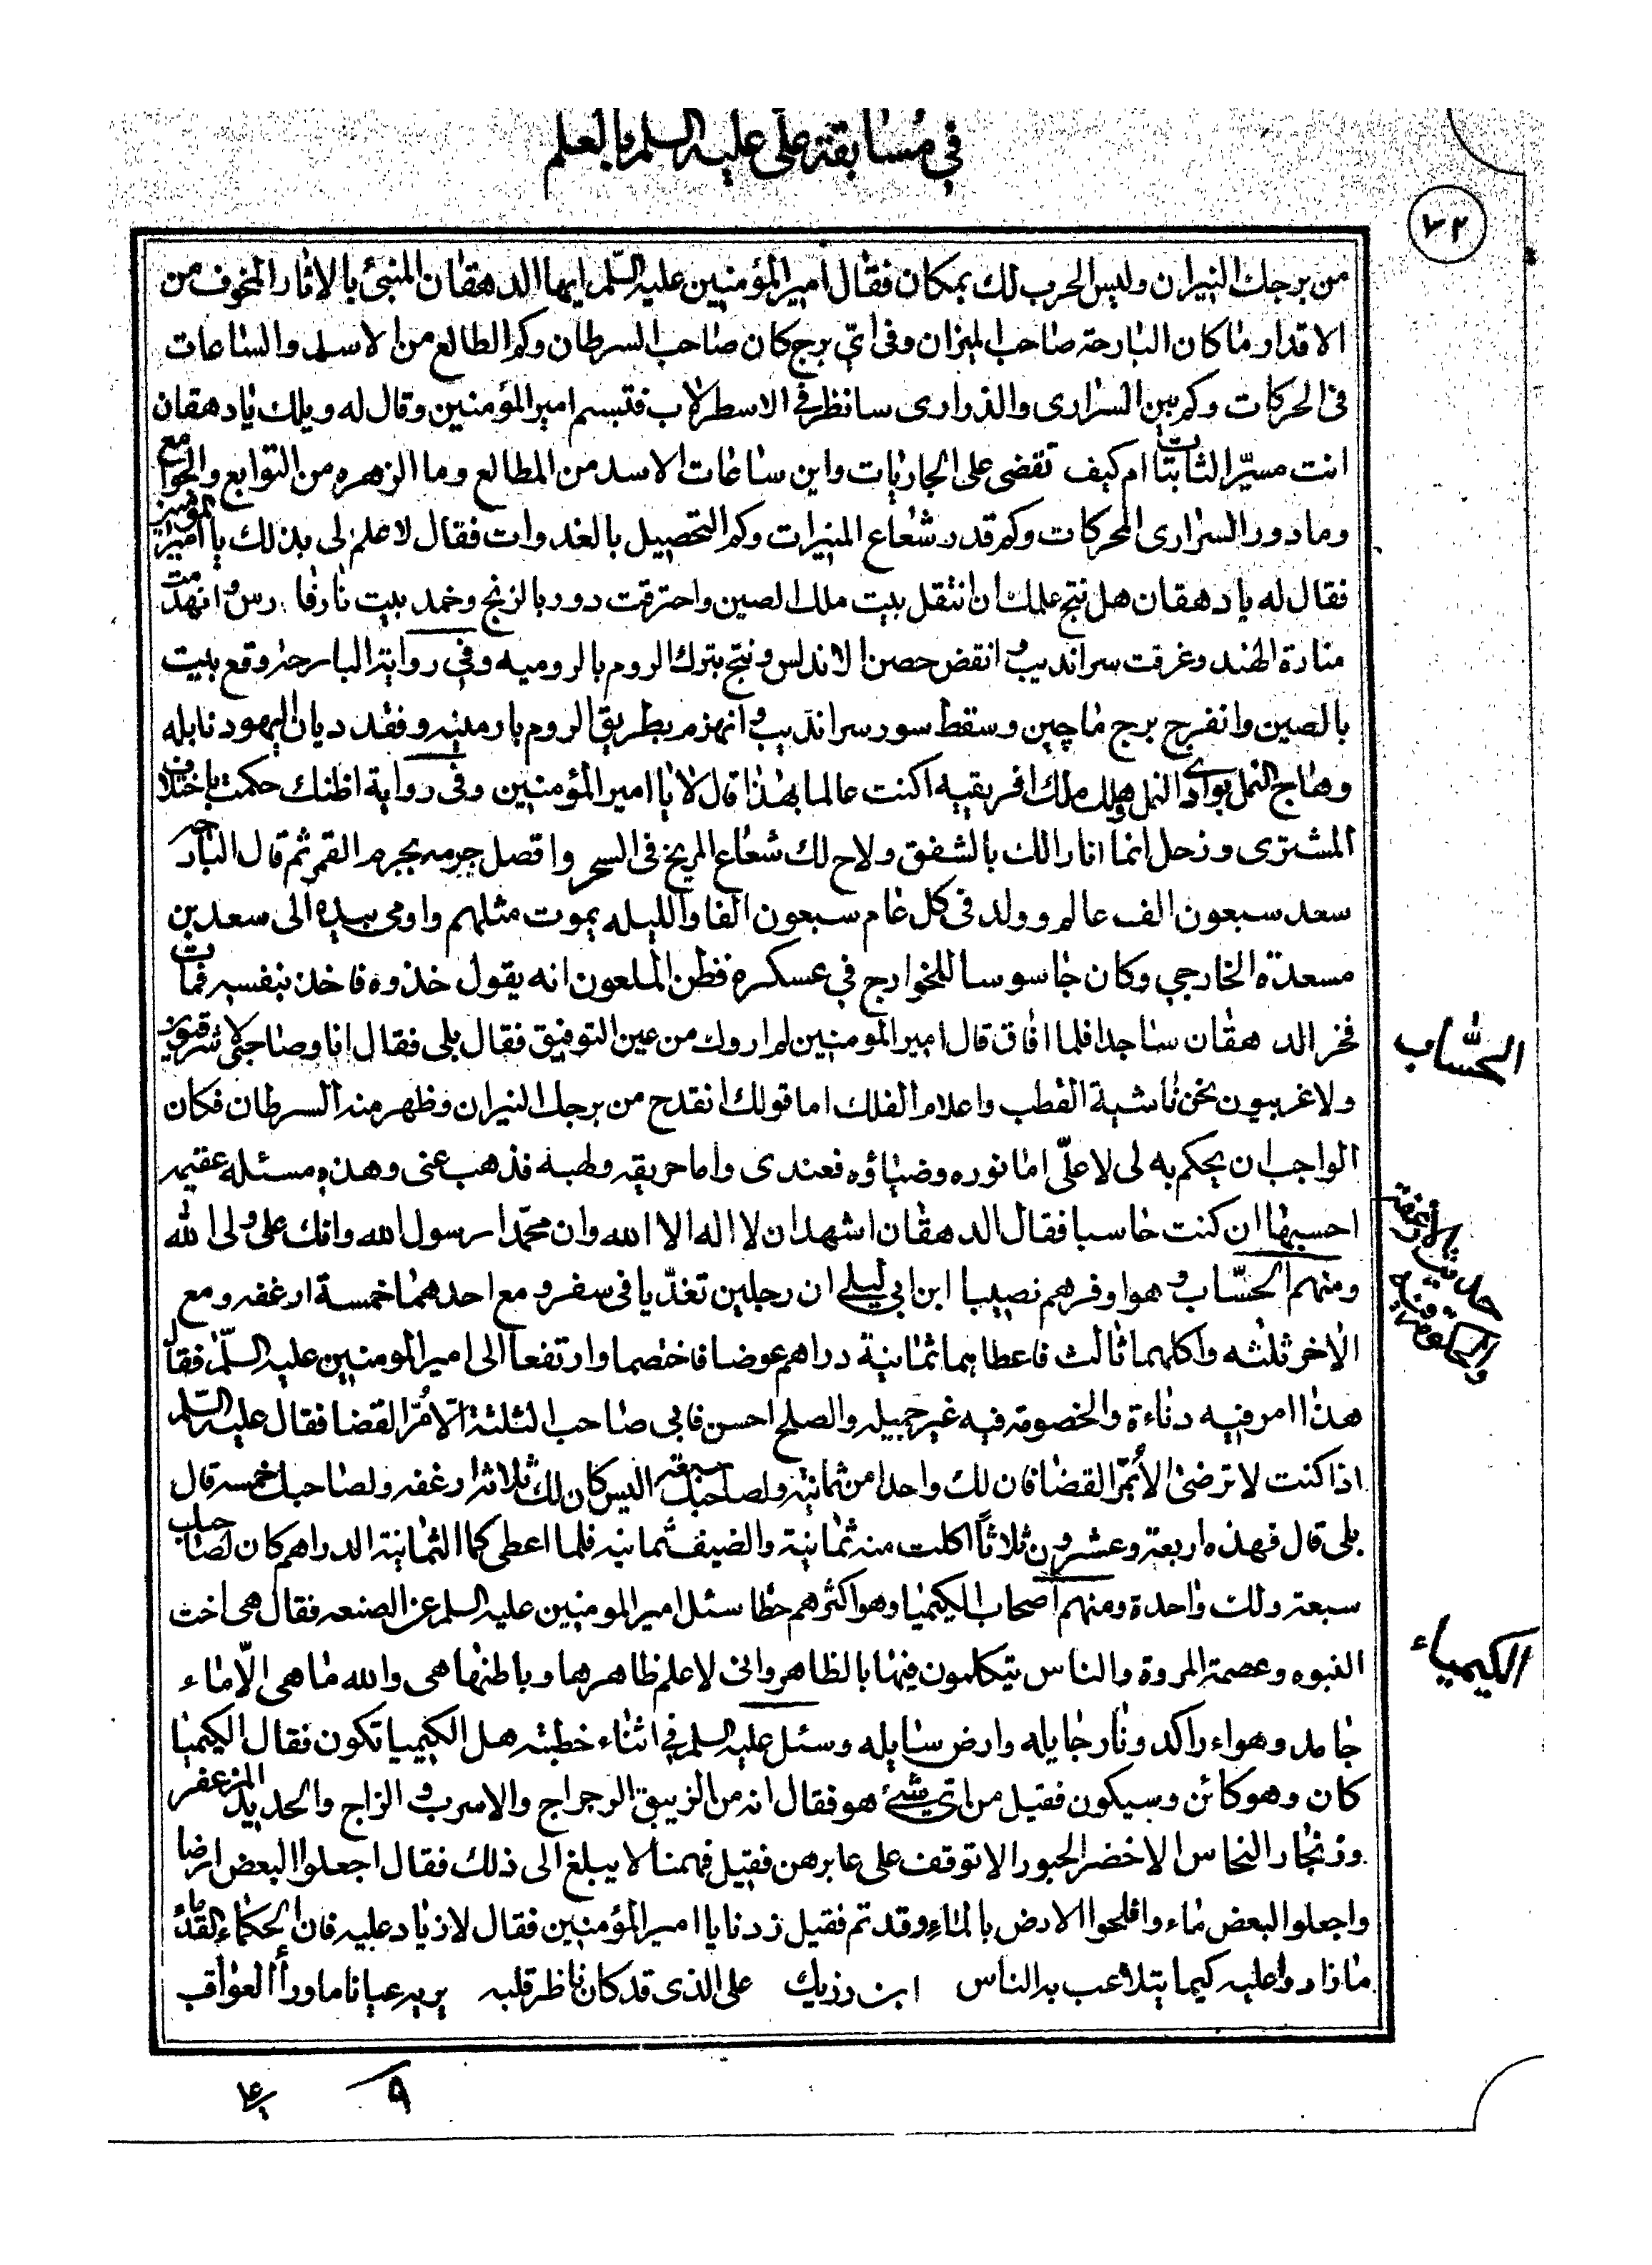 في مسابقة على عليه السلم بالعلم
٧٢
من برجك النيران وليس الحرب لك بمكان فقال امير المؤمنين عليه السلم ايها الدهقان المنبئ بالاثار المخوف من
الاقدار ما كان البارحة صاحب الميزان وفى اى برج كان صاحب السرطان وكم الطالع من الاسد والساعات
فى الحركات وكم بين السرارى والذوارى سانظر فى الاسطرلاب فتبسم امير المؤمنين وقال له ويلك يا دهقان
انت مسير الثابتات ام كيف تقضى على الجاريات واين ساعات الاسد من المطالع وما الزهره من التوابع والجوامع
وما دور السرارى المحركات وكم قدر شعاع المنيرات وكم التحصيل بالغدوات فقال لا علم لى بذلك يا امير المؤمنين
فقال له يا دهقان هل نتج علمك ان انتقل بيت ملك الصين واحترقت دور بالزنج وخمد بيت نار فارس وانهدمت
منارة الهند وغرقت سرانديب وانقض حصن الاندلس ونتج بترك الروم بالروميه وفي رواية البارحة وقع بيت
بالصين وانفرج برج ماچين وسقط سور سرانديب وانهزم بطريق الروم بارمنيه وفقد ديان اليهود نابله
وهاج النمل بوادى النمل وهلك ملك افريقيه اكنت عالما بهذا قال لا يا امير المؤمنين وفى رواية اظنك حكمت باختلاف
المشترى وزحل انما انارا لك بالشفق ولاح لك شعاع المريخ فى السحر واتصل جرمه بجرم القمر ثم قال البارحة
سعد سبعون الف عالم وولد فى كل عام سبعون الفا والليله يموت مثلهم واومى بيده الى سعد بن
مسعدة الخارجي وكان جاسوسا للخوارج في عسكره فظن الملعون انه يقول خذوه فاخذ بنفسه فمات
فخر الدهقان ساجدا فلما افاق قال امير المومنين لم اروك من عين التوفيق فقال بلى فقال انا وصاحبى لا شرقيون
ولا غربيون نحن ناشية القطب واعلام الفلك اما قولك انقدح من برجك النيران وظهر منه السرطان فكان
الواجب ان يحكم به لى لا على اما نوره وضياؤه فعندى واما حريقه ولهبه فذهب عنى وهذه مسئله عقيمه
احسبها ان كنت حاسبا فقال الدهقان اشهد ان لا اله الا الله وان محمدا رسول الله وانك على ولى الله
ومنهم الحسّاب وهو اوفرهم نصيبا ابن ابي ليلى ان رجلين تغدّيا فى سفر ومع احدهما خمسة ارغفه ومع
الاخر ثلثه واكلهما ثالث فاعطاهما ثمانية دراهم عوضا فاختصما وارتفعا الى امير المومنين عليه السلم فقال
هذا امر فيه دناءة والخصومة فيه غير جميله والصلح احسن فابى صاحب الثلثة الا مُرّ القضا فقال عليه السلم
اذا كنت لا ترضى الا بمرّ القضا فان لك واحدا من ثمانية ولصاحبك سبعة اليس كان لك ثلاثة ارغفه ولصاحبك خمسه قال
بلى قال فهذه اربعة وعشرون ثلاثاً اكلت منه ثمانية والضيف ثمانيه فلما اعطى كما الثمانية الدراهم كان لصاحبك
سبعة ولك واحدة ومنهم اصحاب الكيميا وهو اكثرهم حظا سئل امير المومنين عليه السلم عن الصنعه فقال هى اخت
النبوه وعصمة المروة والناس يتكلمون فيها بالظاهر وانى لاعلم ظاهرها وباطنها هى والله ما هى الّا ماء
جامد وهواء راكد ونار جايله وارض سايله وسئل عليه السلم في اثناء خطبته هل الكيميا تكون فقال الكيميا
كان وهو كائن وسيكون فقيل من اى شئ هو فقال انه من الزيبق الرجراج والاسرب والزاج والحديد المزعفر
وزنجار النحاس الاخضر الحبور الا توقف على عابرهن فقيل فهمنا لا يبلغ الى ذلك فقال اجعلوا البعض ارضا
واجعلوا البعض ماء وافلحوا الارض بالماء وقد تم فقيل زدنا يا امير المؤمنين فقال لا زياد عليه فان الحكماء القدما
ما زادوا عليه كيما يتلاعب به الناس ابن رزيك على الذى قد كان ناظر قلبه يريه عيانا ما وراء العواقب
الحسّاب
حديث الأرغفة
الكيمياء